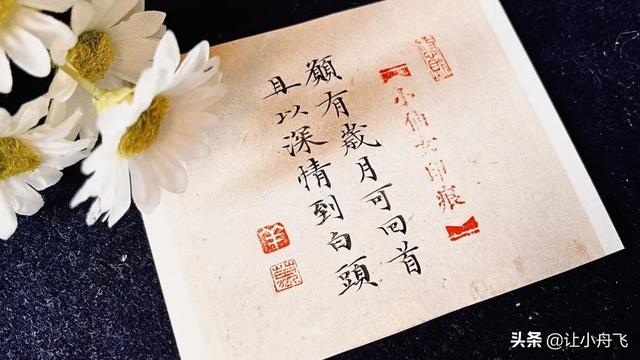 小仙女印痕
願有歲月可回首
且以深情到白頭
头条 @让小舟飞